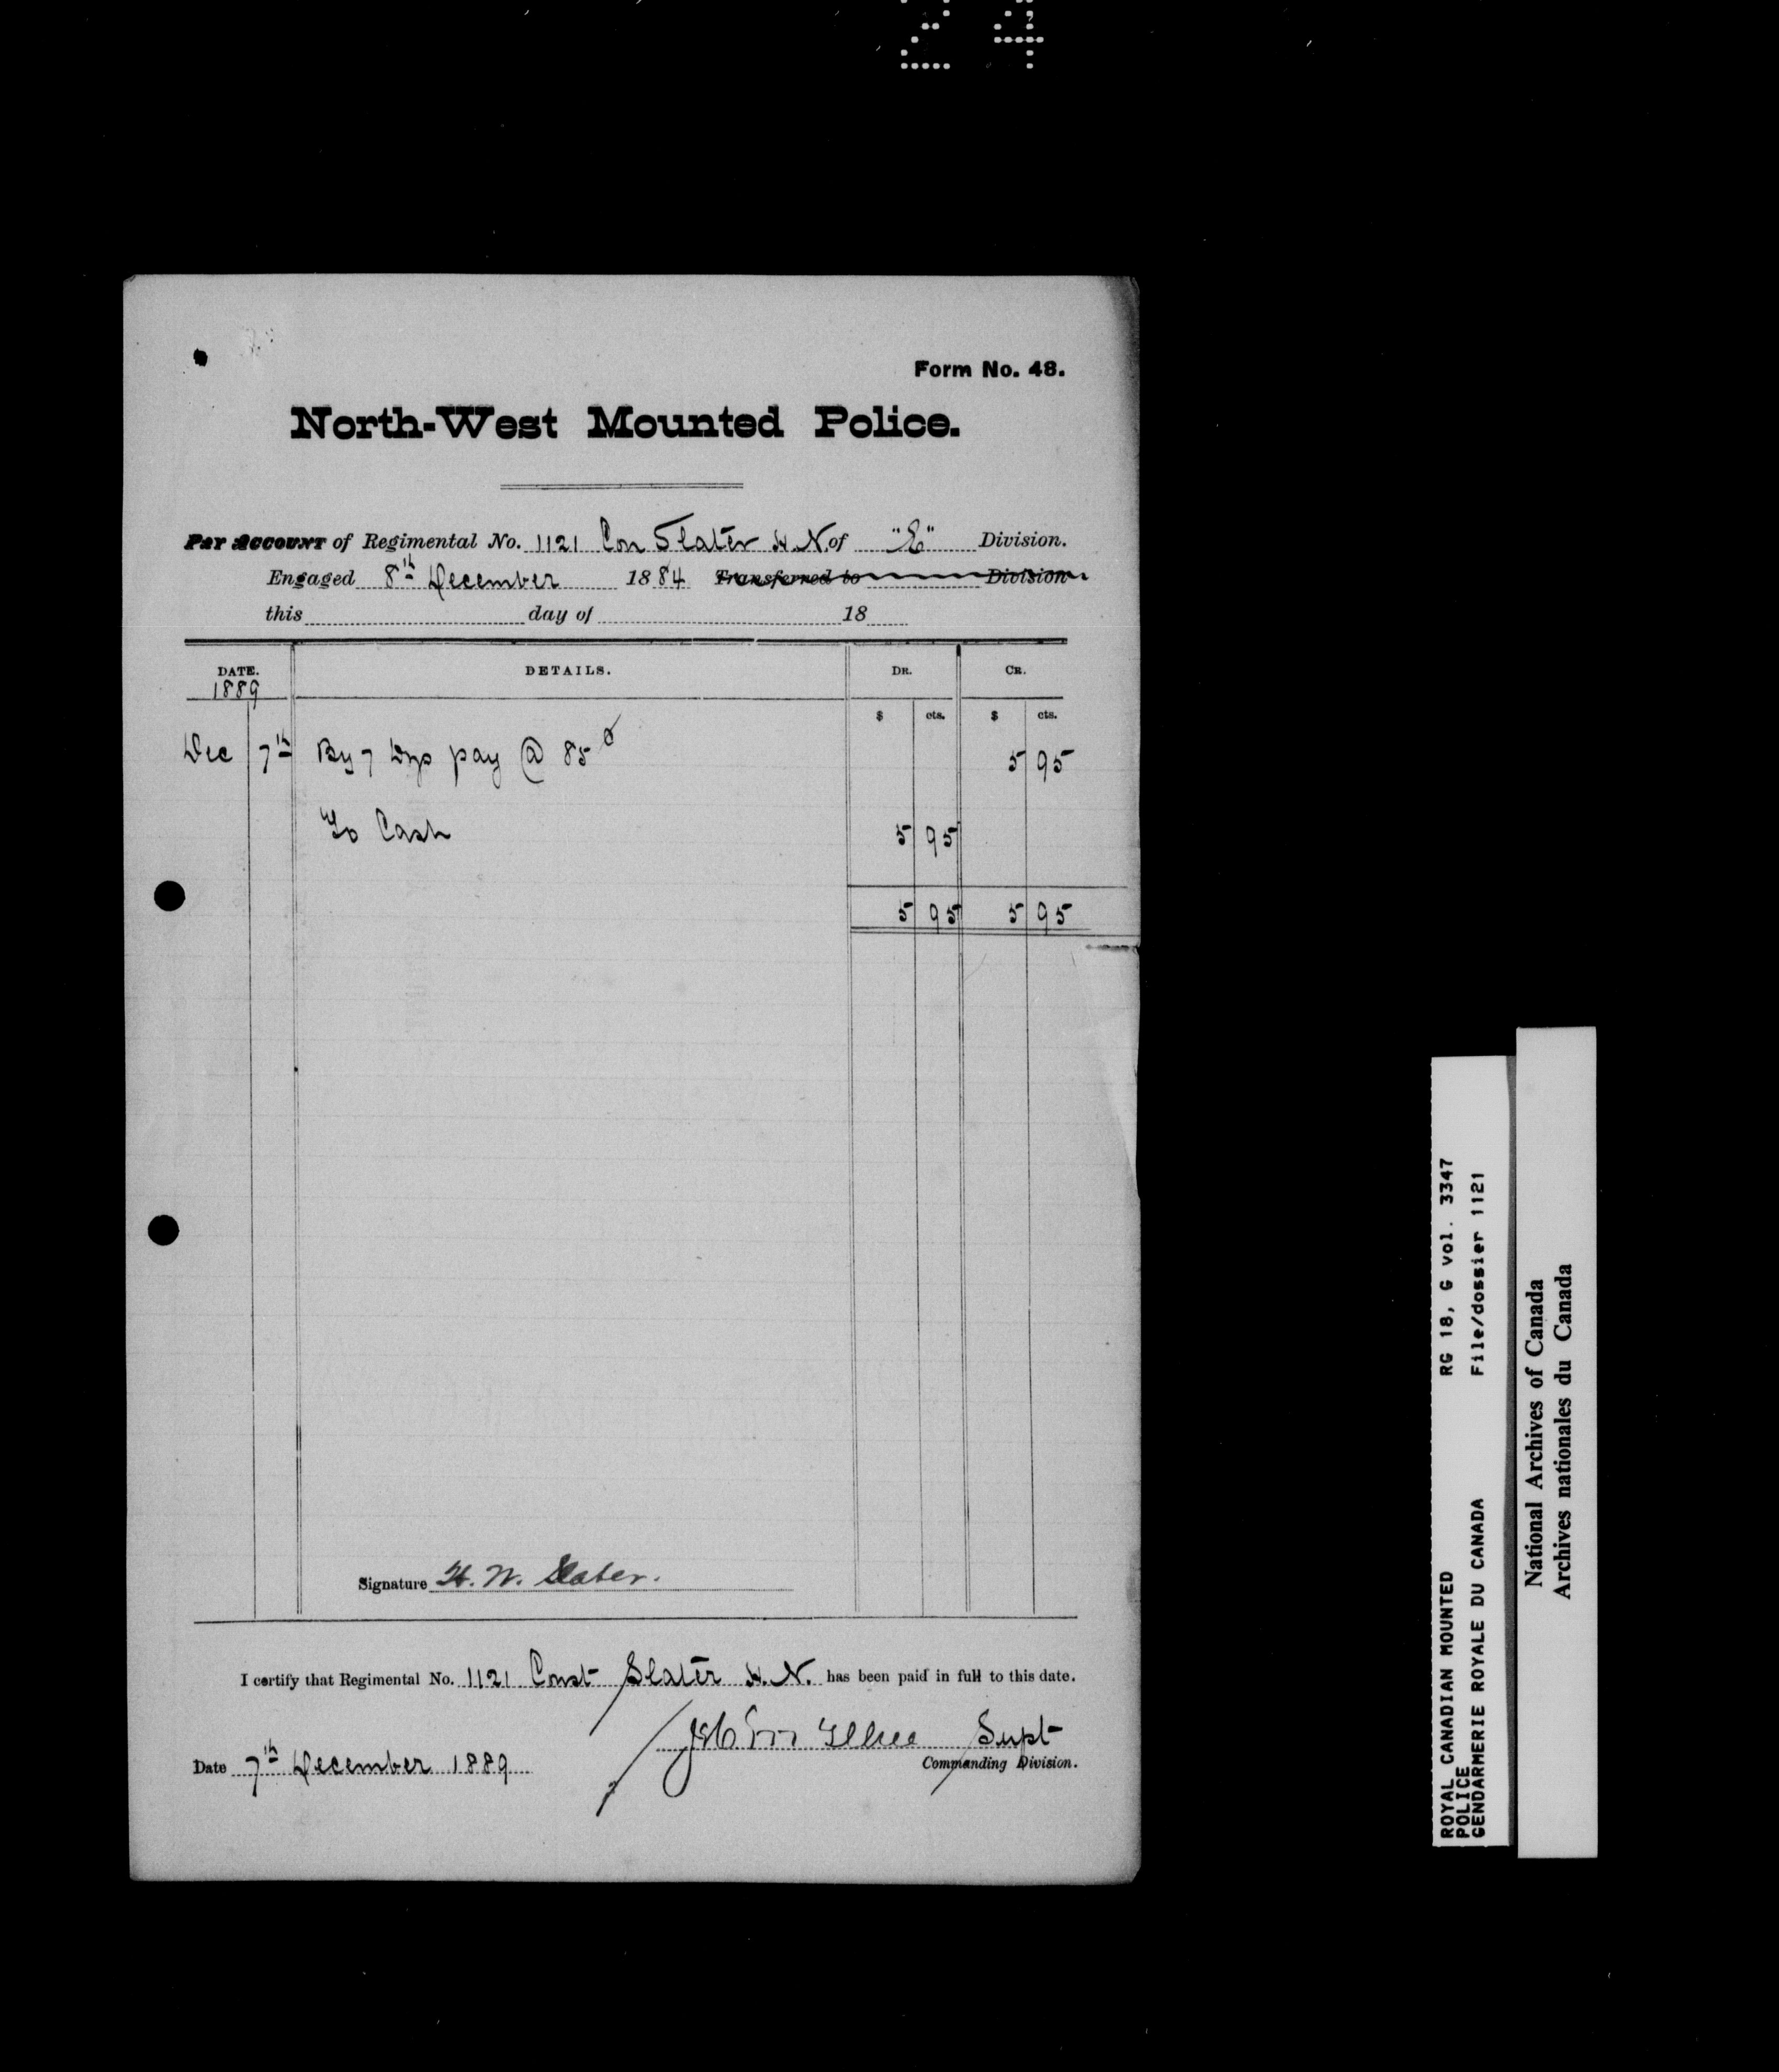 24
Form No. 48.
North-West Mounted Police.
Pay Account of Regimental No. 1121 Con Slater H. N of "E" Division.
Engaged 8th December 1884 Transferred to Division
this day of 18
DATE. DETAILS. DR. CR.
1889
$ cts. $ cts.
Dec 7th By 7 Dys pay @ 85¢ 5 95
To Cash 5 95
5 95 5 95
Signature H. N. Slater.
I certify that Regimental No. 1121 Const Slater H. N. has been paid in full to this date.
Supt
Date 7th December 1889 Commanding Division.
ROYAL CANADIAN MOUNTED RG 18, G vol. 3347
POLICE
GENDARMERIE ROYALE DU CANADA File/dossier 1121
National Archives of Canada
Archives nationales du Canada